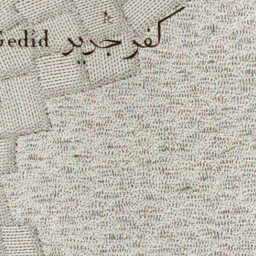 Gedid كفر جديد